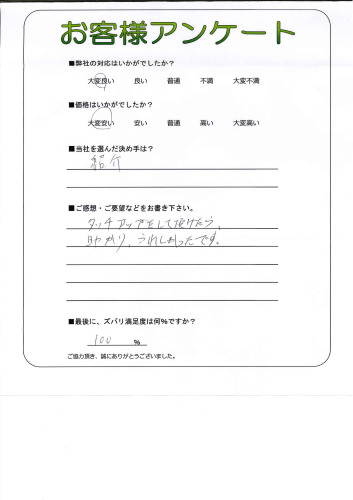 お客様アンケート
■弊社の対応はいかがでしたか?
大変良い 良い 普通 不満 大変不満
■価格はいかがでしたか?
大変安い 安い 普通 高い 大変高い
■当社を選んだ決め手は?
紹介
■ご感想・ご要望などをお書き下さい。
タッチアップをして頂けたら、
助かり、うれしかったです。
■最後に、ズバリ満足度は何%ですか?
100 %
ご協力頂き、誠にありがとうございました。